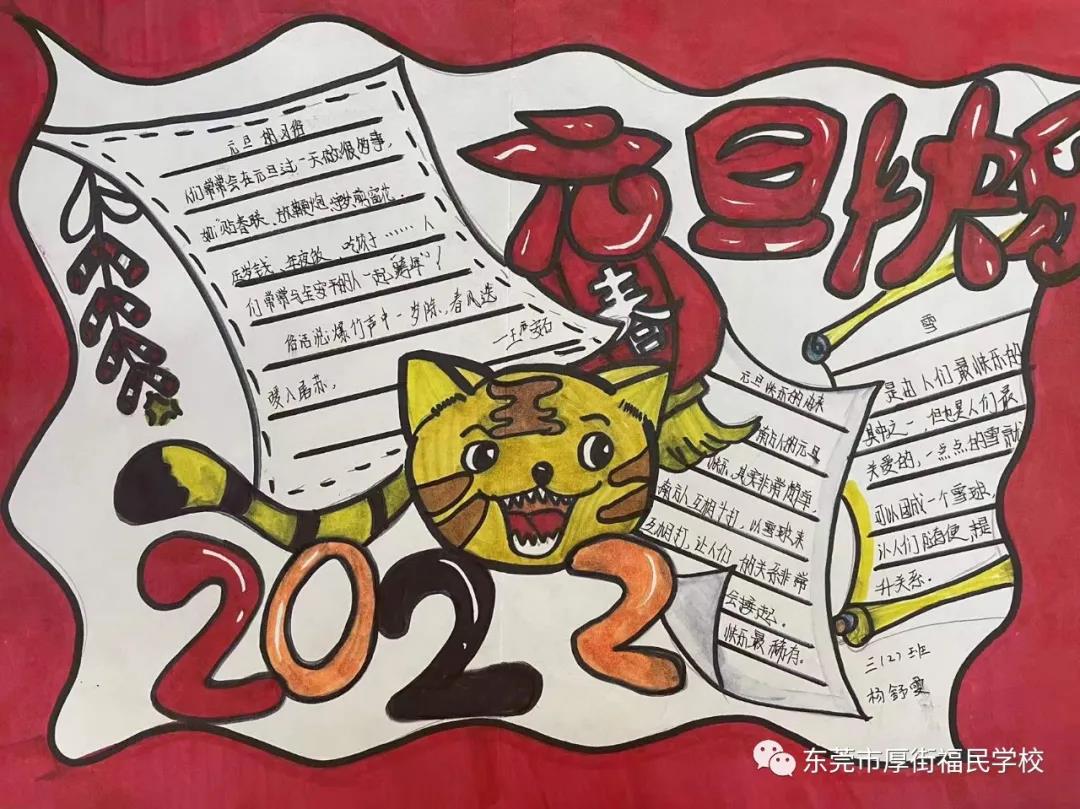 元旦快
春
元旦的习俗
人们常常会在元旦过一天做很多事,
如"贴春联、放鞭炮、剪窗花、
压岁钱、年夜饭、吃饺子……人
们常常与全家平的人一起跨年"!
俗话说:爆竹声中一岁除,春风送
暖入屠苏。
一王安石
王
2022
元旦快乐的由来
南方人的元旦
快乐,其实非常简单,
南方人互相斗打,以雪球来
互相打,让人们的关系非常
会
快乐最稀有。
雪
是由人们最快乐的
其中之一,但也是人们最
关爱的,一点点的雪就
可以团成一个雪球,
让人们随便提
升关系。
三(2)班
杨舒雯
东莞市厚街福民学校